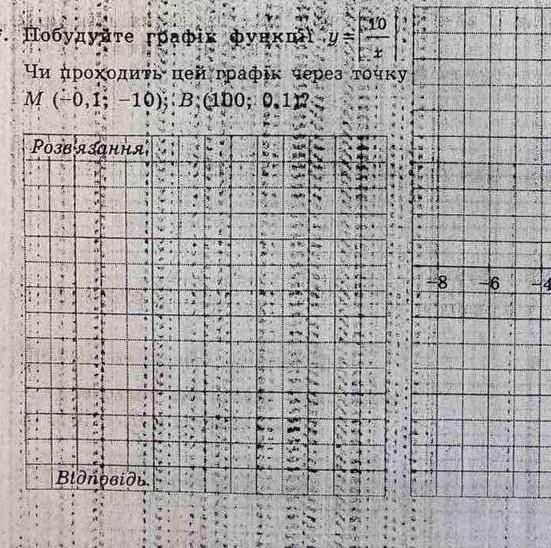 Побудуйте графік функції y = |10/x|
Чи проходить цей графік через точку
M (−0,1; −10); B (100; 0,1)?
Розв'язання.
−8 −6 −4
Відповідь.